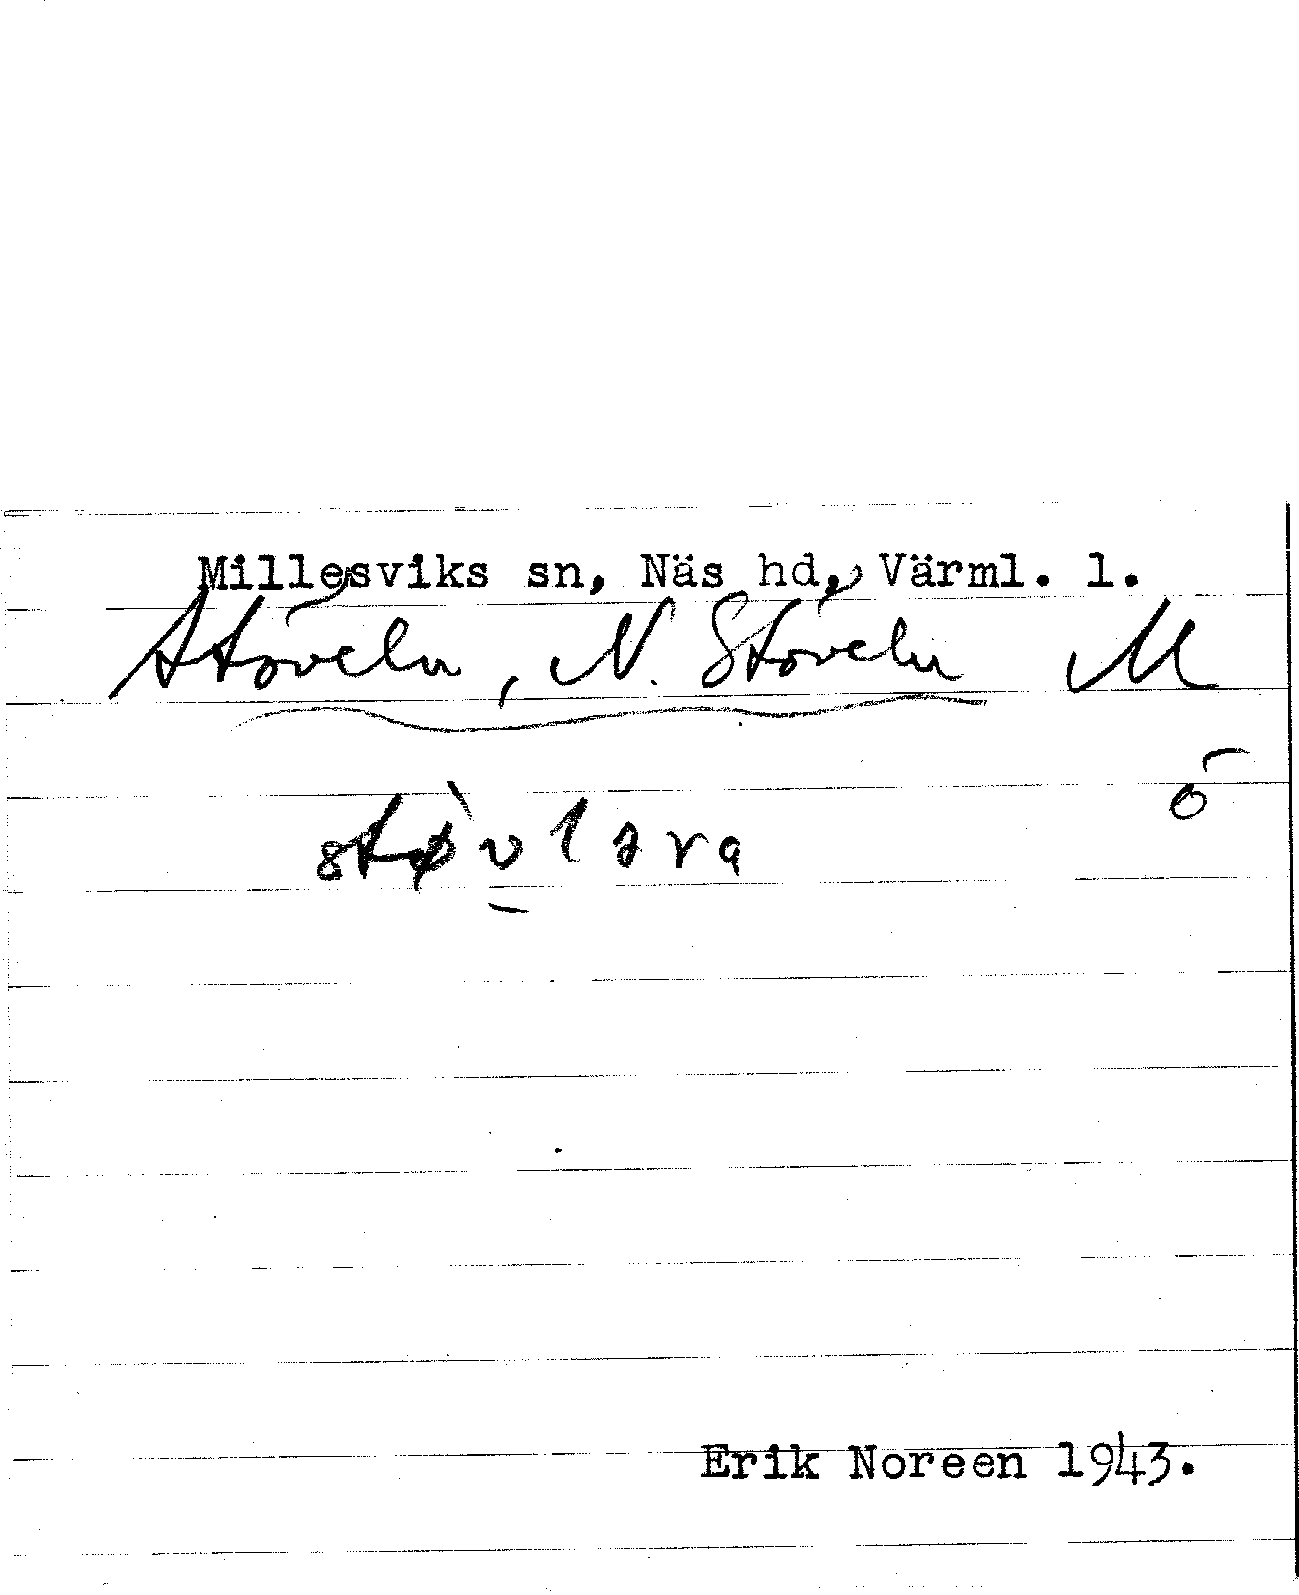 Millesviks sn, Näs hd, Värml. l.
Støveln, N. Støveln M
ō
stø̀vlara
Erik Noreen 1943.